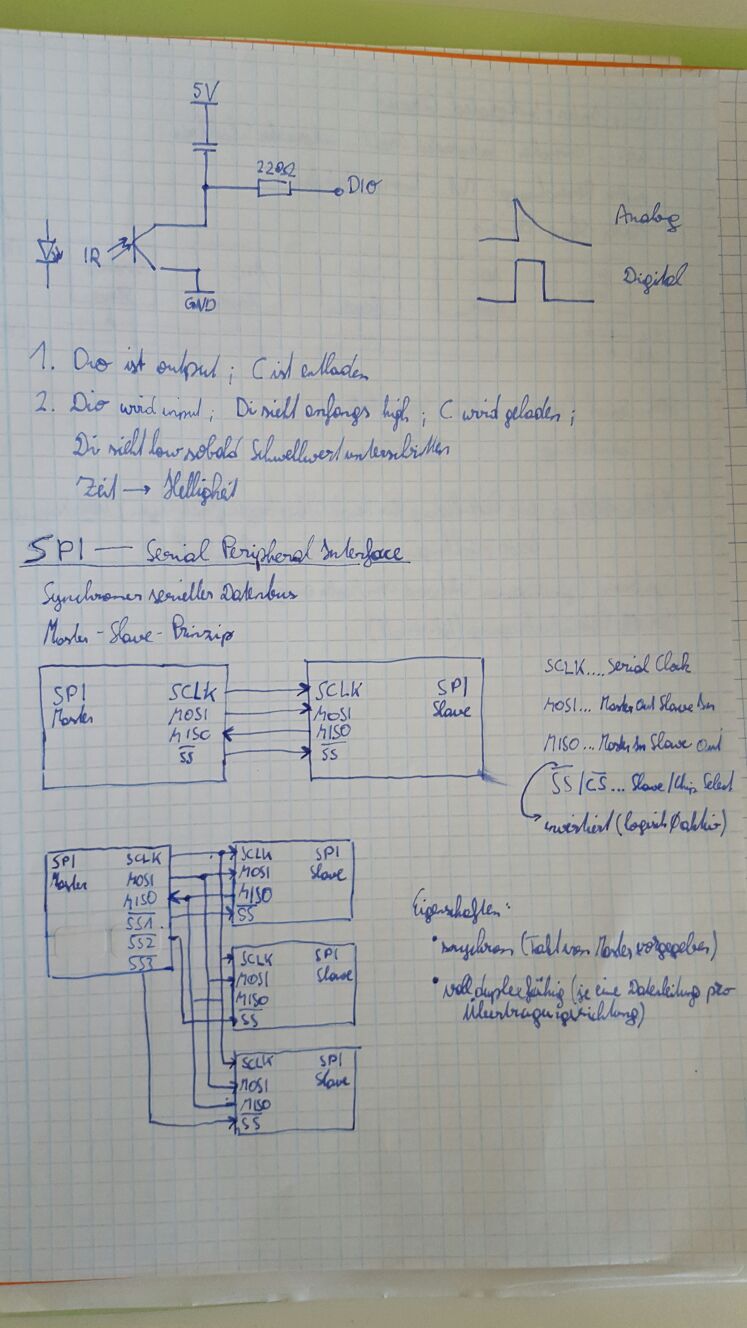 5V
220Ω
DIO
IR
GND
Analog
Digital
1. Dio ist output; C ist entladen
2. Dio wird input; Di sieht anfangs high; C wird geladen;
Di sieht low sobald Schwellwert unterschritten
Zeit → Helligkeit
SPI — Serial Peripheral Interface
Synchroner serieller Datenbus
Master-Slave-Prinzip
SPI SCLK
Master MOSI
MISO
SS
SCLK SPI
MOSI Slave
MISO
SS
SCLK.... Serial Clock
MOSI... Master Out Slave In
MISO... Master In Slave Out
SS/CS... Slave/Chip Select
invertiert (logisch 0 aktiv)
SPI SCLK
Master MOSI
MISO
SS1
SS2
SS3
SCLK SPI
MOSI Slave
MISO
SS
SCLK SPI
MOSI Slave
MISO
SS
SCLK SPI
MOSI Slave
MISO
SS
Eigenschaften:
• synchron (Takt von Master vorgegeben)
• vollduplexfähig (je eine Datenleitung pro
Übertragungsrichtung)